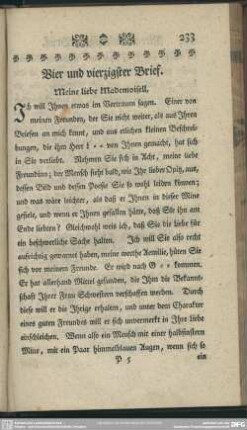 233
Vier und vierzigster Brief.
Meine liebe Mademoisell,
Ich will Ihnen etwas im Vertrauen sagen. Einer von
meinen Freunden, der Sie nicht weiter, als aus Ihren
Briefen an mich kennt, und aus etlichen kleinen Beschrei-
bungen, die ihm Herr l·· von Ihnen gemacht, hat sich
in Sie verliebt. Nehmen Sie sich in Acht, meine liebe
Freundinn; der Mensch sieht bald, wie Ihr lieber Opitz, aus,
dessen Bild und dessen Poesie Sie so wohl leiden können;
und was wäre leichter, als daß er Ihnen in dieser Mine
gefiele, und wenn er Ihnen gefallen hätte, daß Sie ihn am
Ende liebten? Gleichwohl weis ich, daß Sie die Liebe für
ein beschwerliche Sache halten. Ich will Sie also recht
aufrichtig gewarnet haben, meine werthe Aemilie, hüten Sie
sich vor meinem Freunde. Er wird nach G·· kommen.
Er hat allerhand Mittel gefunden, die Ihm die Bekannt-
schaft Ihrer Frau Schwestern verschaffen werden. Durch
diese will er die Ihrige erhalten, und unter dem Charakter
eines guten Freundes will er sich unvermerkt in Ihre Liebe
einschleichen. Wenn also ein Mensch mit einer halbfinstern
Mine, mit ein Paar himmelblauen Augen, wenn sich so
P 5
ein